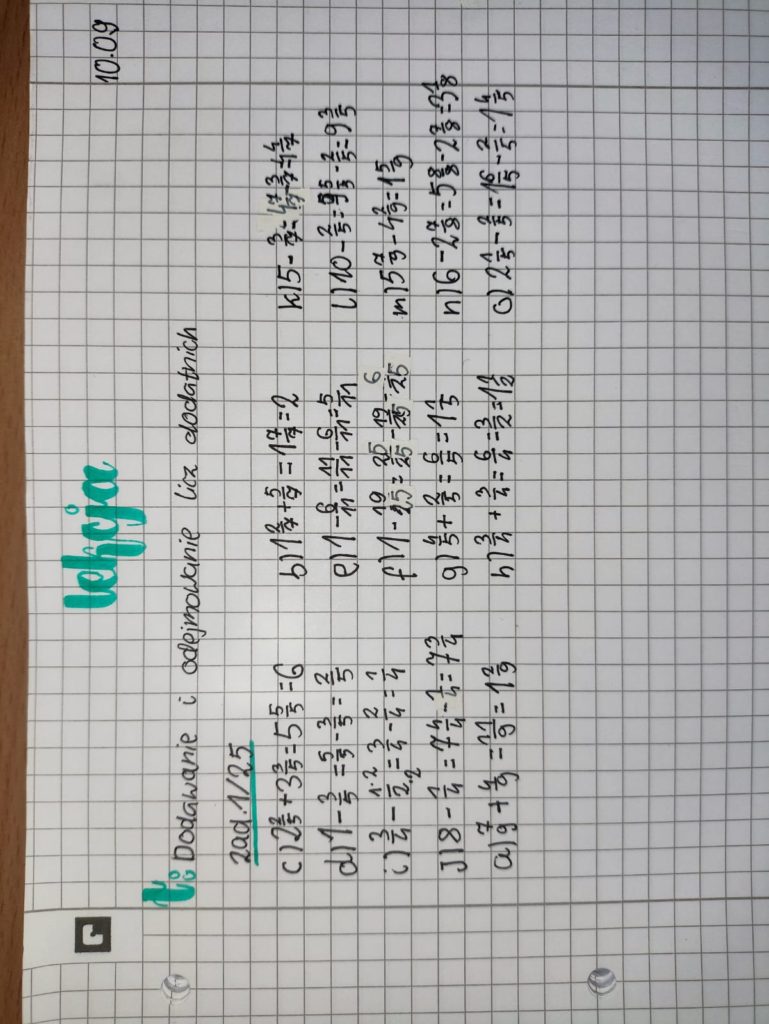 10.09
Lekcja
T: Dodawanie i odejmowanie licz dodatnich
zad.1/25
c) 2 2/5 + 3 3/5 = 5 5/5 = 6 b) 1 2/7 + 5/7 = 1 7/7 = 2 k) 5 - 3/7 = 4 7/7 - 3/7 = 4 4/7
d) 1 - 3/5 = 5/5 - 3/5 = 2/5 e) 1 - 6/11 = 11/11 - 6/11 = 5/11 l) 10 - 2/5 = 9 5/5 - 2/5 = 9 3/5
i) 3/4 - 1·2/2·2 = 3/4 - 2/4 = 1/4 f) 1 - 19/25 = 25/25 - 19/25 = 6/25 m) 5 7/9 - 4 2/9 = 1 5/9
J) 8 - 1/4 = 7 4/4 - 1/4 = 7 3/4 g) 4/5 + 2/5 = 6/5 = 1 1/5 n) 6 - 2 7/8 = 5 8/8 - 2 7/8 = 3 1/8
a) 7/9 + 4/9 = 11/9 = 1 2/9 h) 3/4 + 3/4 = 6/4 = 3/2 = 1 1/2 o) 2 1/5 - 2/5 = 1 6/5 - 2/5 = 1 4/5